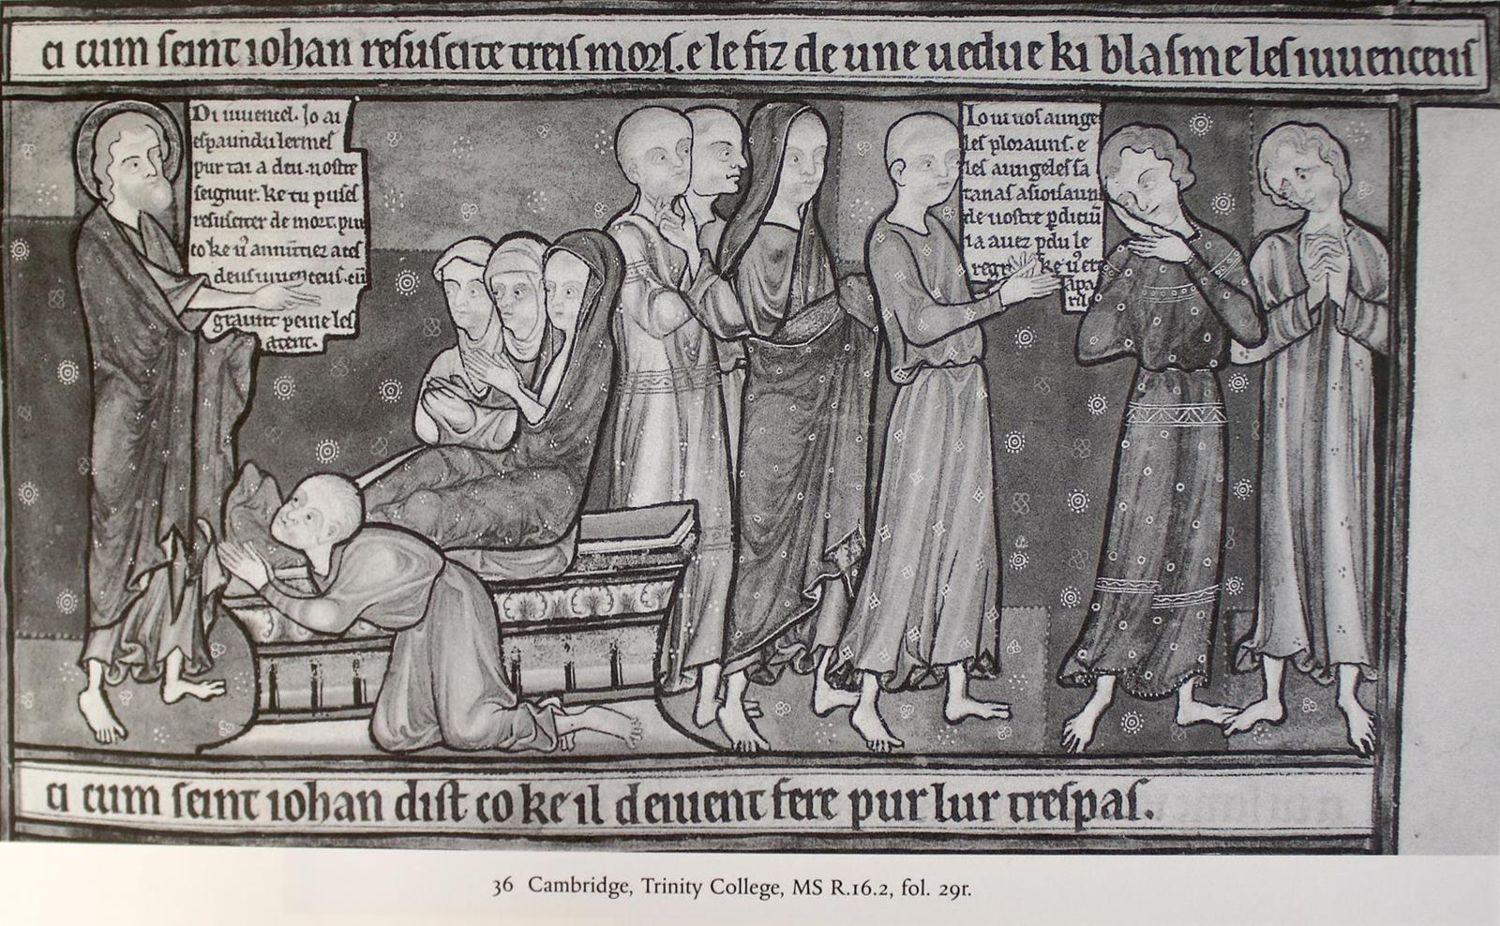 ci cum seint iohan resuscite treis morz. e le fiz de une uedue ki blasme les iuuenceus
Di iuuencel. Jo ai
espaundu lermes
pur tai a deu. nostre
seignur. ke tu puses
resusciter de mort. pur
co ke annunciez a ces
deus iuuenceus. cū
graunt peine les
atent.
Io ui uos aunge
les plorauns. e
les aungeles sa
tanas
de uostre pdiciū
ia auez pdu le
regn ke
apa
ci cum seint iohan dist co ke il deiuent fere pur lur trespas.
36 Cambridge, Trinity College, MS R.16.2, fol. 29r.